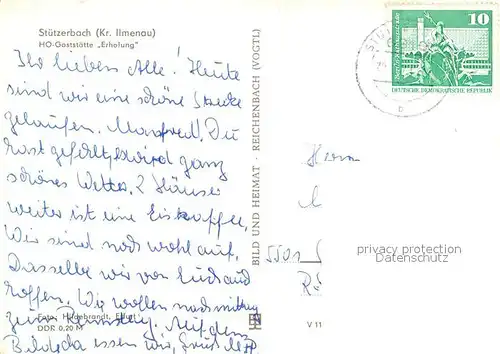 Stützerbach (Kr. Ilmenau)
HO-Gaststätte „Erholung"
Ihr lieben Alle! Heute
sind wir eine schöne Strecke
gelaufen. Manfred, Du
hast gefehlt, es wird ganz
schönes Wetter. 2 Häuser
weiter ist eine Eiskaffee.
Wir sind noch wohl auf.
Dasselbe wir von Euch auch
hoffen. Wir wollen nachmittag
zum Rennsteig. Auf dem
essen wir,
Foto: Hildebrandt, Erfurt
DDR 0,20 M
BILD UND HEIMAT · REICHENBACH (VOGTL)
V 11
10
DEUTSCHE DEMOKRATISCHE REPUBLIK
Herrn
5501
privacy protection
Datenschutz